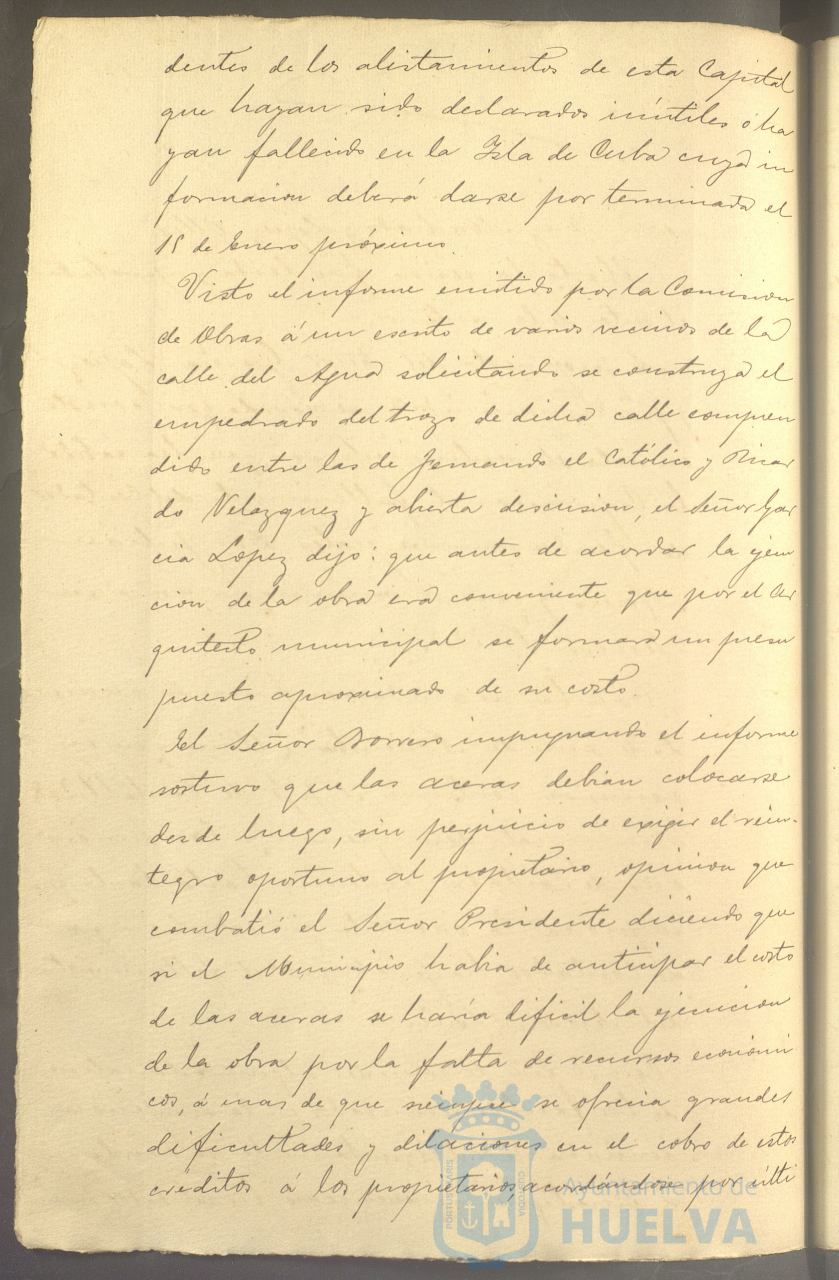 dentes de los alistamientos de esta Capital
que hayan sido declarados inútiles ó ha
yan fallecido en la Isla de Cuba cuya in
formacion deberá darse por terminada el
15 de Enero próximo.
Visto el informe emitido por la Comision
de Obras á un escrito de varios vecinos de la
calle del Agua solicitando se construya el
empedrado del trozo de dicha calle compren
dido entre las de Fernando el Católico y Ricar
do Velazquez y abierta discusion, el Señor Gar
cia Lopez dijo: que antes de acordar la ejecu
cion de la obra era conveniente que por el Ar
quitecto municipal se formara un presu
puesto aproximado de su costo.
El Señor Borrero impugnando el informe
sostuvo que las aceras debian colocarse
desde luego, sin perjuicio de exigir el rein-
tegro oportuno al propietario, opinion que
combatió el Señor Presidente diciendo que
si el Municipio habia de anticipar el costo
de las aceras se haría dificil la ejecucion
de la obra por la falta de recursos economi
cos, á mas de que siempre se ofrecia grandes
dificultades y dilaciones en el cobro de estos
creditos á los propietarios, acordándose por ulti
Ayuntamiento de
HUELVA